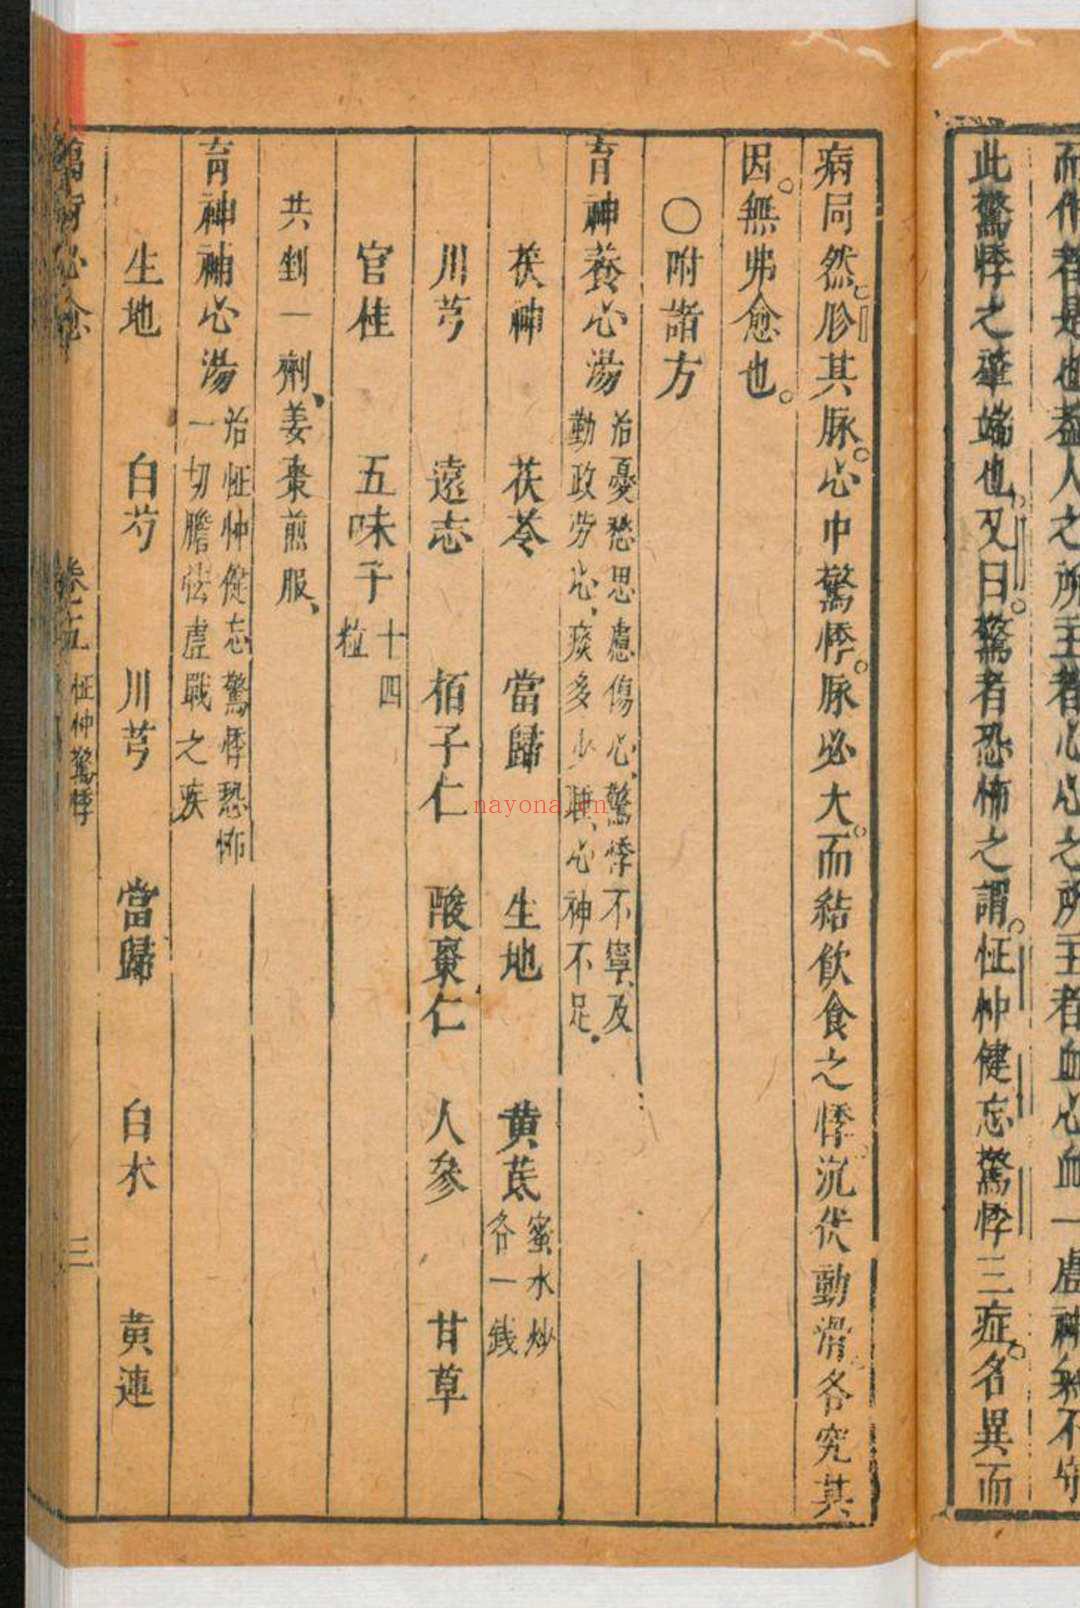 而作者是也蓋人之所主者心心之所主者血心血一虛神氣不守
此驚悸之肇端也又曰驚者恐怖之謂怔忡健忘驚悸三症名異而
病同然胗其脉心中驚悸脉必大而結飲食之悸沉伏動滑各究其
因無弗愈也
〇附諸方
育神養心湯治憂愁思慮傷心驚悸不寧及
勤政劳心痰多少睡心神不足
茯神 茯苓 當歸 生地 黄芪蜜水炒
各一錢
川芎 遠志 栢子仁 酸棗仁 人參 甘草
官桂 五味子十四
粒
共剉一劑姜棗煎服
育神補心湯治怔忡健忘驚悸恐怖
一切膽怯虛戰之疾
生地 白芍 川芎 當歸 白朮 黄連
萬病必愈 怔忡驚悸 三
nayona.cn